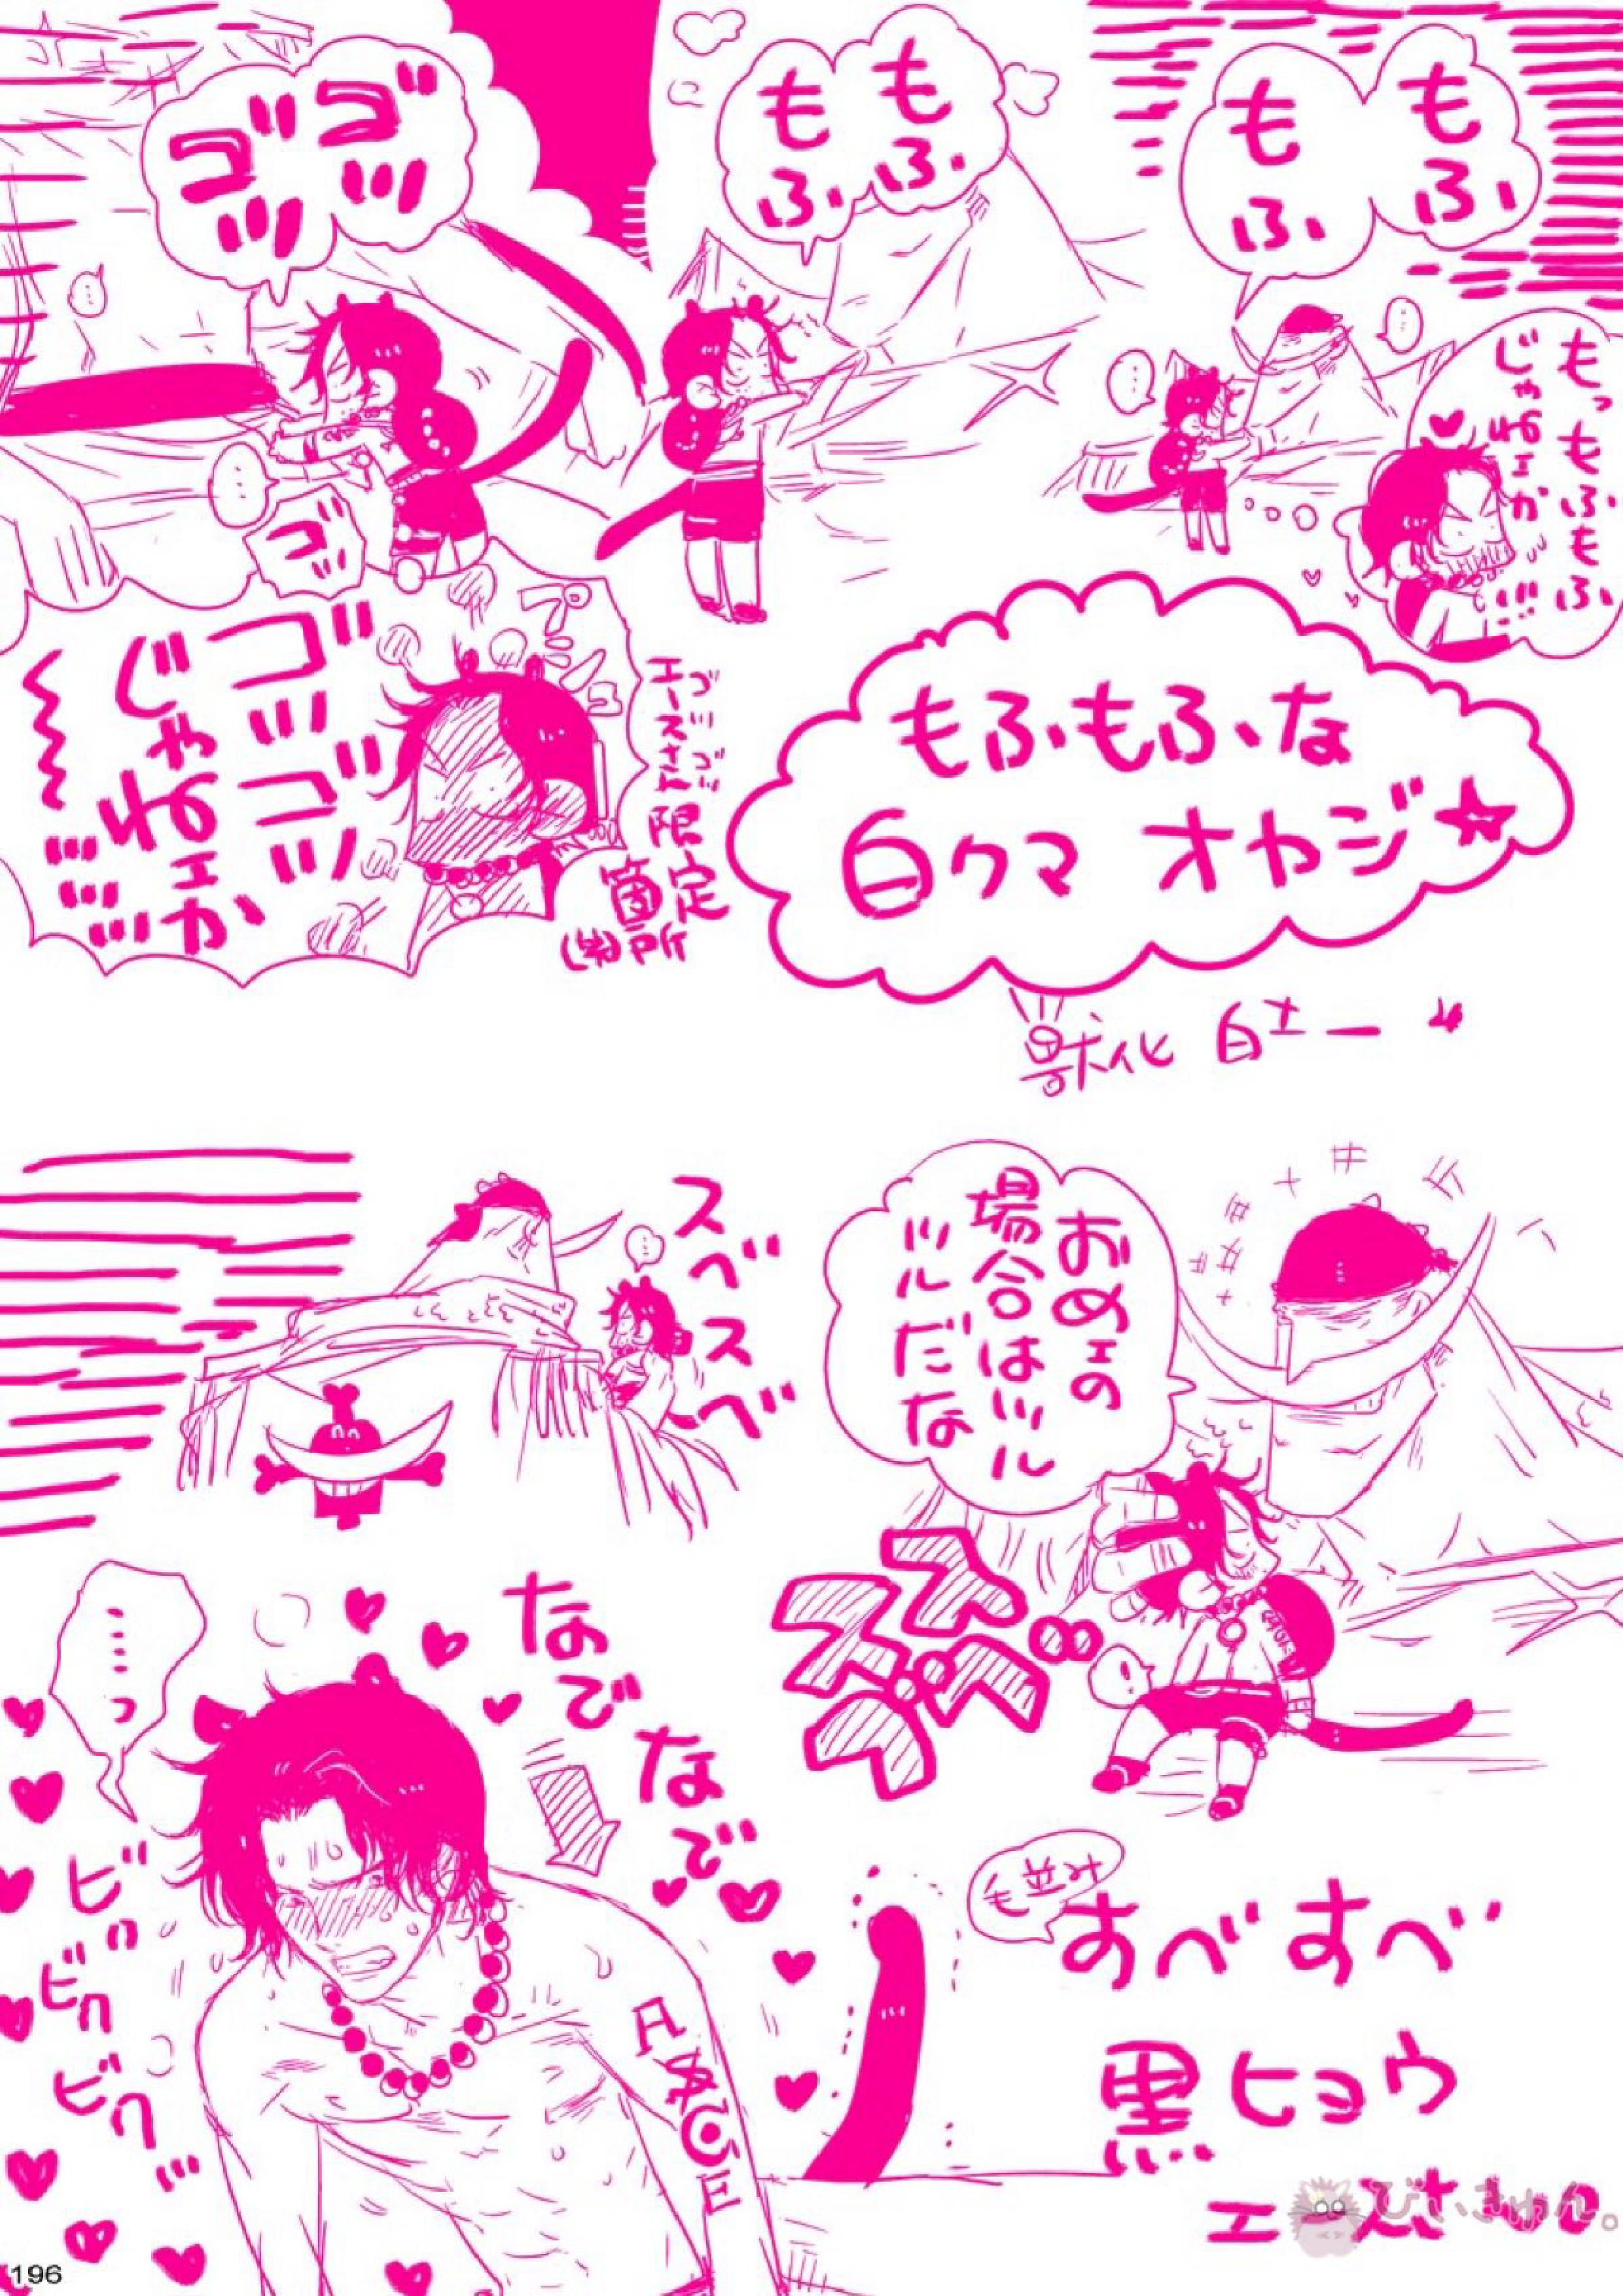 もふ
もふ
もっもふもふ
じゃねェか
もふ
もふ
ゴツ
ゴツ
ゴツ
ゴツゴツ
じゃねェか
プンッ
ゴツゴツ
エースさん
限定
箇所
(笑)
もふもふな
白クマ オヤジ☆
獣化 白±ー
おめェの
場合はツル
ツルだな
スベスベ
スベ
スベ
なでなで
……っ
ビクビクビクッ
ASCE
毛並み
すべすべ
黒ヒョウ
びぃきゅん。
196